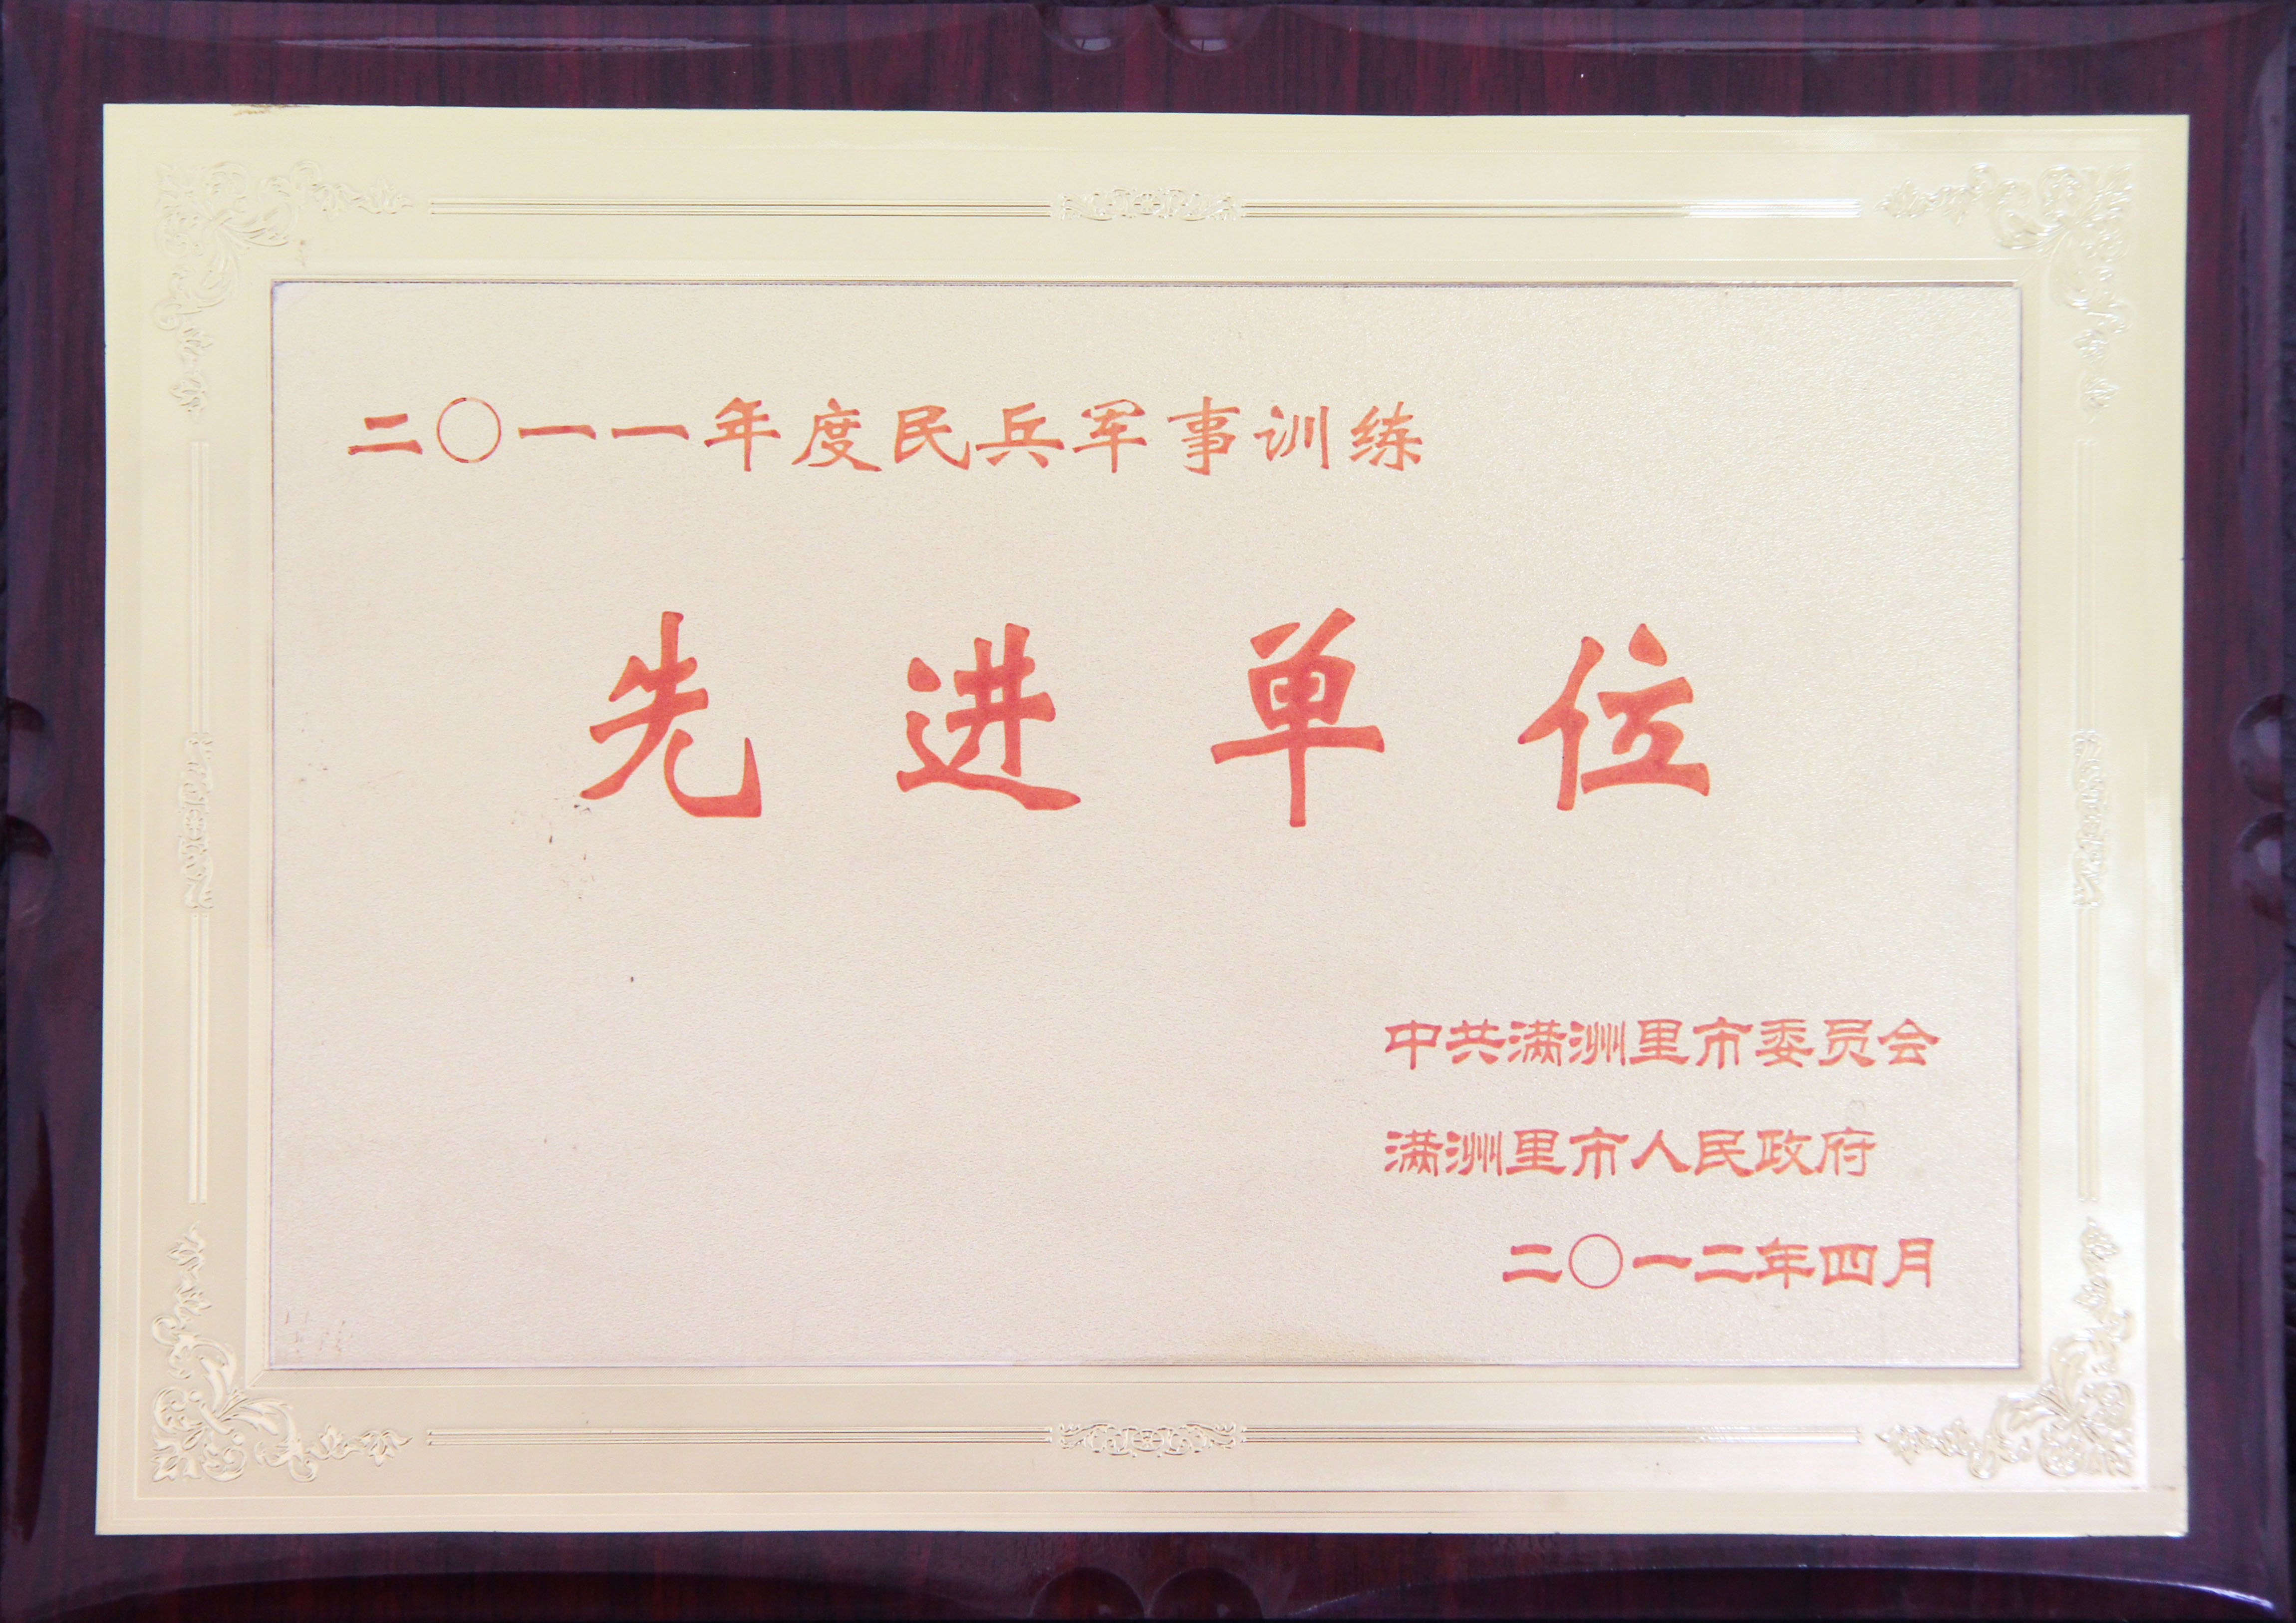 二〇一一年度民兵军事训练
先进单位
中共满洲里市委员会
满洲里市人民政府
二〇一二年四月